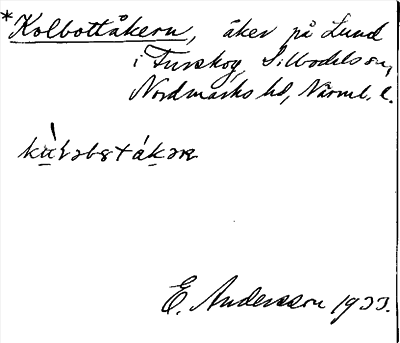 *Kolbottåkern, åker på Lund
i Turskog, Sillbodals sn,
Nordmarks hd, Värml. l.
E. Andersson 1933.